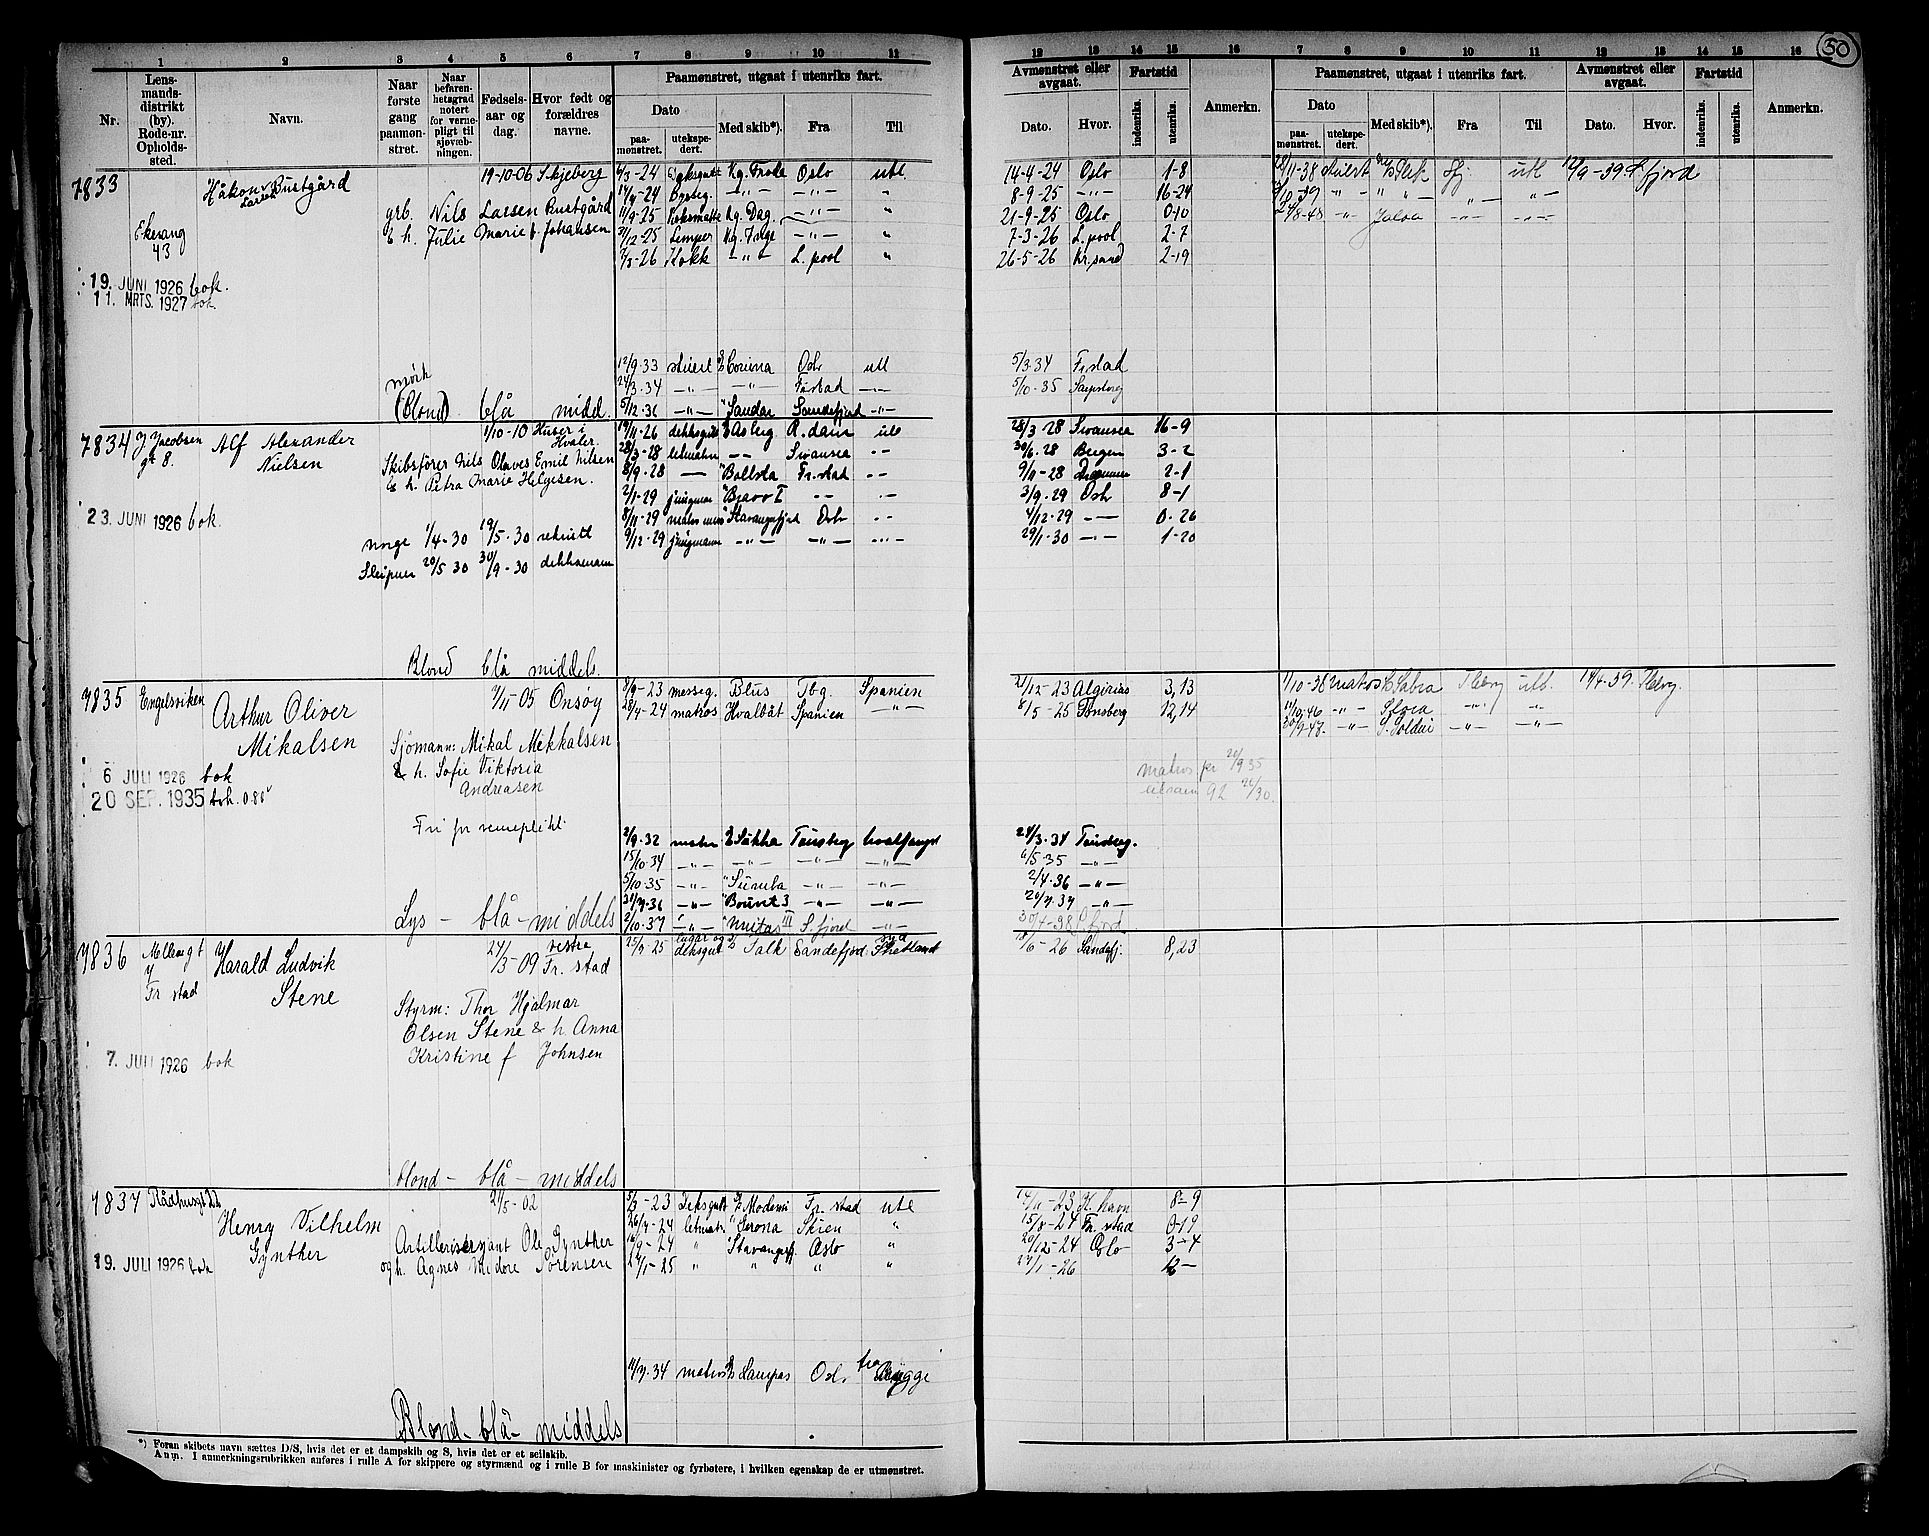 50
1 2 3 4 5 6 7 8 9 10 11
12 13 14 15 16 7 8 9 10 11 12 13 14 15 16
Nr. Lensmandsdistrikt (by). Rode-nr. Opholdssted. Navn. Naar første gang paamønstret. Naar befarenhetsgrad notert for vernepligt til sjøvæbningen. Fødselsaar og dag. Hvor født og forældres navne.
Paamønstret, utgaat i utenriks fart.
Dato Med skib*). Fra Til
paamønstret. utekspedert.
Avmønstret eller avgaat. Fartstid Anmerkn.
Dato. Hvor. indenriks. utenriks.
Paamønstret, utgaat i utenriks fart. Avmønstret eller avgaat. Fartstid Anmerkn.
Dato Med skib*). Fra Til Dato. Hvor. indenriks. utenriks.
paamønstret. utekspedert.
7833 Håkon Bustgård 19-10-06 Skjeberg
Larsen
grb. Nils Larsen Bustgård
& h. Julie Marie f. Johansen
Ekevang
43
19. JUNI 1926 bok.
11. MRTS. 1927 bok.
mørk
(Blond) blå midd.
3-24 Kg. Frode Oslo utl 14-4-24 Oslo 1-8
4-24 Byssg. -"- -"- " 8-9-25 -"- 16-24
11/9-25 Kg. Dag. -"- " 21-9-25 Oslo 0-10
31/12-25 Lemper Kg. Inge -"- " 7-3-26 L.pool 2-7
3-26 Kokk -"- L.pool " 26-5-26 Kr.sand 2-19
12/9.33 stuert Corona Oslo utl 5/3.34 Fr.stad
24/3.34 -"- -"- Fr.stad -"- 5/10-35 Sarpsborg
5/12.36 -"- " Sandar Sandefjord -"-
11-38 Stuert utl 9-39 S.fjord
10-39 -"- " " -"- -"-
8-48 -"- Jalna -"- -"-
7834 J. Jacobsen Alf Alexander 1/10-10 Huser i
gt 8. Nielsen Hvaler.
Skibsfører Nils Olaves Emil Nilsen
& h. Petra Marie Helgesen.
23. JUNI 1926 bok.
Norge 1/4-30 19/5-30 rekrutt
Sleipner 20/5 30 30/9-30 dekksmann
Blond blå middels.
19/11-26 dekksgutt Asberg R.dam utl 28/3-28 Swansea 16-9
28/3-28 letmatr -"- Swansea -"- 30/6.28 Bergen 3-2
8/9-28 — " Ballsta Fr.stad -"- 9/11-28 Drammen 2-1
2/1-29 jungmann " Bjavo I -"- -"- 3/9.29 Oslo 8-1
8/11-29 " Stavangerfjord Oslo -"- 4/12-29 -"- 0-26
9/12.29 jungmann -"- -"- -"- 29/1-30 -"- 1-20
7835 Engelsviken Arthur Oliver 7/11-05 Onsøy
Mikalsen
Sjømann: Mikal Mikkalsen
& h. Sofie Viktoria
Andreasen
6 JULI 1926 bok
20 SEP. 1935 bok.
Fri for verneplikt.
Lys - blå - middels
8/9-23 messeg. Blus Tbg. Spanien 21/12-23 Algirias 3,13
28/4-24 matros Hvalbåt Spanien -"- 8/5-25 Tønsberg 12,14
matros pr 20/9 35
2/9.32 matr Tønsberg hvalfangst 24/3.34 Tønsberg.
15/10-34 -"- -"- -"- -"- 6/5-35 -"-
5/10.35 -"- " Sumba -"- -"- 2/4.36 -"-
-"- " Bouvet 3 -"- -"- -"-
2/10.37 -"- " III S.fjord -"- 30/4-38 S.fjord
1/10-38 matros Sabra Tbrg utl. 14/4-39. Tbrg.
10-46 -"- -"- -"-
30/9-47. -"- -"- -"-
7836 Møllergt Harald Ludvik 24/3-09 vestre
7 Stene Fr. stad
Fr stad
Styrm: Thor Hjalmar
Olsen Stene & h Anna
Kristine f Johnsen
7. JULI 1926 bok
blond - blå - middels
25/9-25 deksgut Falk Sandefjord Syd Shetland 18/6-26 Sandefj. 8,23
7837 Rådhusgt 22 Henry Vilhelm 21/5-02
Gynther
Artillerisersjant Ole Gynther
og h. Agnes Midore Sørensen
19. JULI 1926 bok
Blond - blå - middels
5/3-23 Deksgutt Modesni Fr. stad utl 14/11-23 K. havn 8-9
26/7-24 letmatr " Serona Skien " 15/8-24 Fr. stad 0-19
16/9-24 " Stavangerfj. Oslo " 20/12-24 Oslo 3-4
24/1-25 " " " " 27/1-26 12-
14/7.34 matros Lampas Oslo fra Brygge
*) Foran skibets navn sættes D/S, hvis det er et dampskib og S, hvis det er et seilskib.
Anm. I anmerkningsrubrikken anføres i rulle A for skippere og styrmænd og i rulle B for maskinister og fyrbøtere, i hvilken egenskap de er utmønstret.